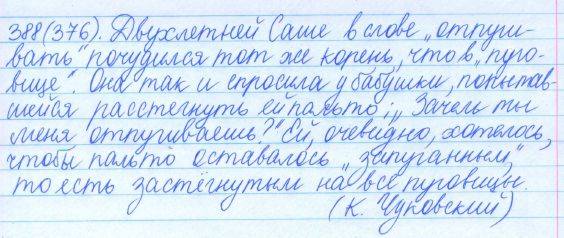 388(376). Двухлетней Саше в слове „отпуги-
вать" почудился тот же корень, что в „пуго-
вице". Она так и спросила у бабушки, попытав-
шейся расстегнуть ей пальто: „Зачем ты
меня отпугиваешь?" Ей, очевидно, хотелось,
чтобы пальто оставалось „запуганным",
то есть застёгнутым на все пуговицы.
(К. Чуковский)